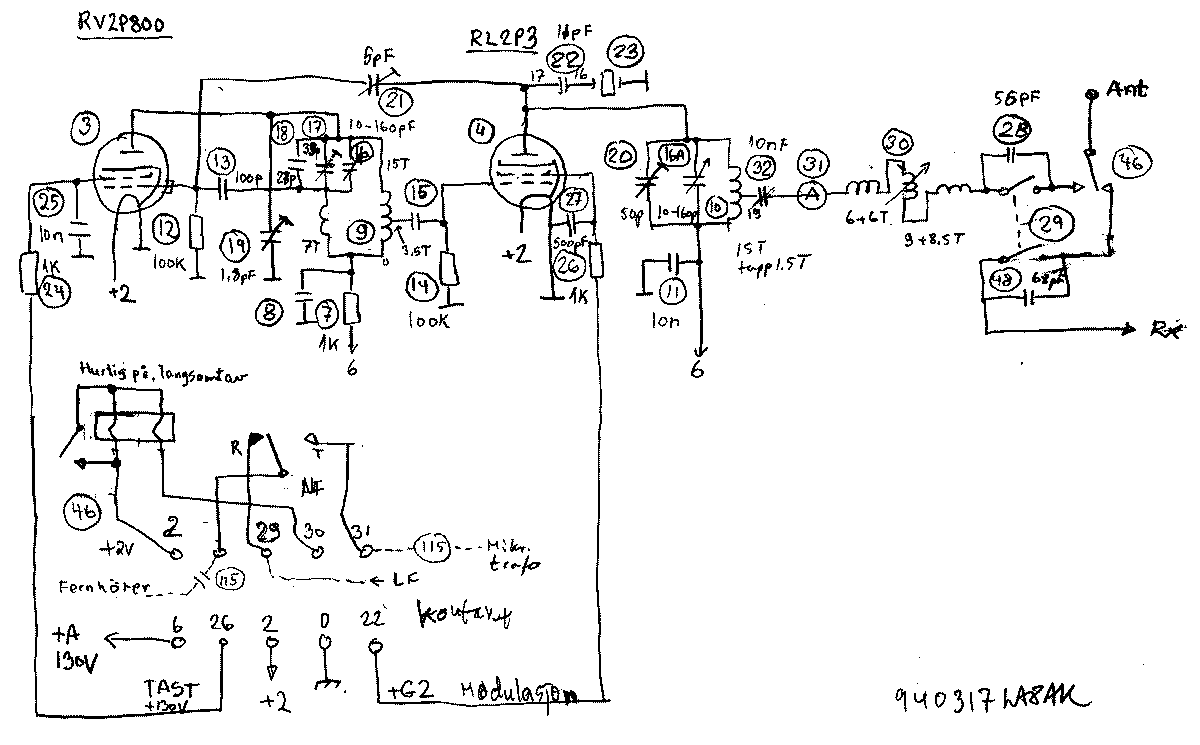 RV2P800
RL2P3
5pF
21
17
22
16
23
3
18
17
10-160pF
4
13
100p
15T
15
25
10n
12
100K
19
1,8pF
7T
9
3.5T
1K
24
+2
8
7
1K
6
14
100K
+2
27
500pF
26
1K
20
16A
50p
10-160p
10
15T
tapp 1.5T
11
10n
6
10nF
32
31
A
30
6+6T
9+8.5T
56pF
28
29
Ant
46
48
68pF
Rx
Hurtig på, langsomt av
46
+2V
2
R
T
NF
29
30
31
115
Mikr.
trafo
Fernhörer
115
LF
+A
130V
6
26
2
0
22
kontakt
TAST
+130V
+2
+G2
Modulasjon
940317 LA8AK